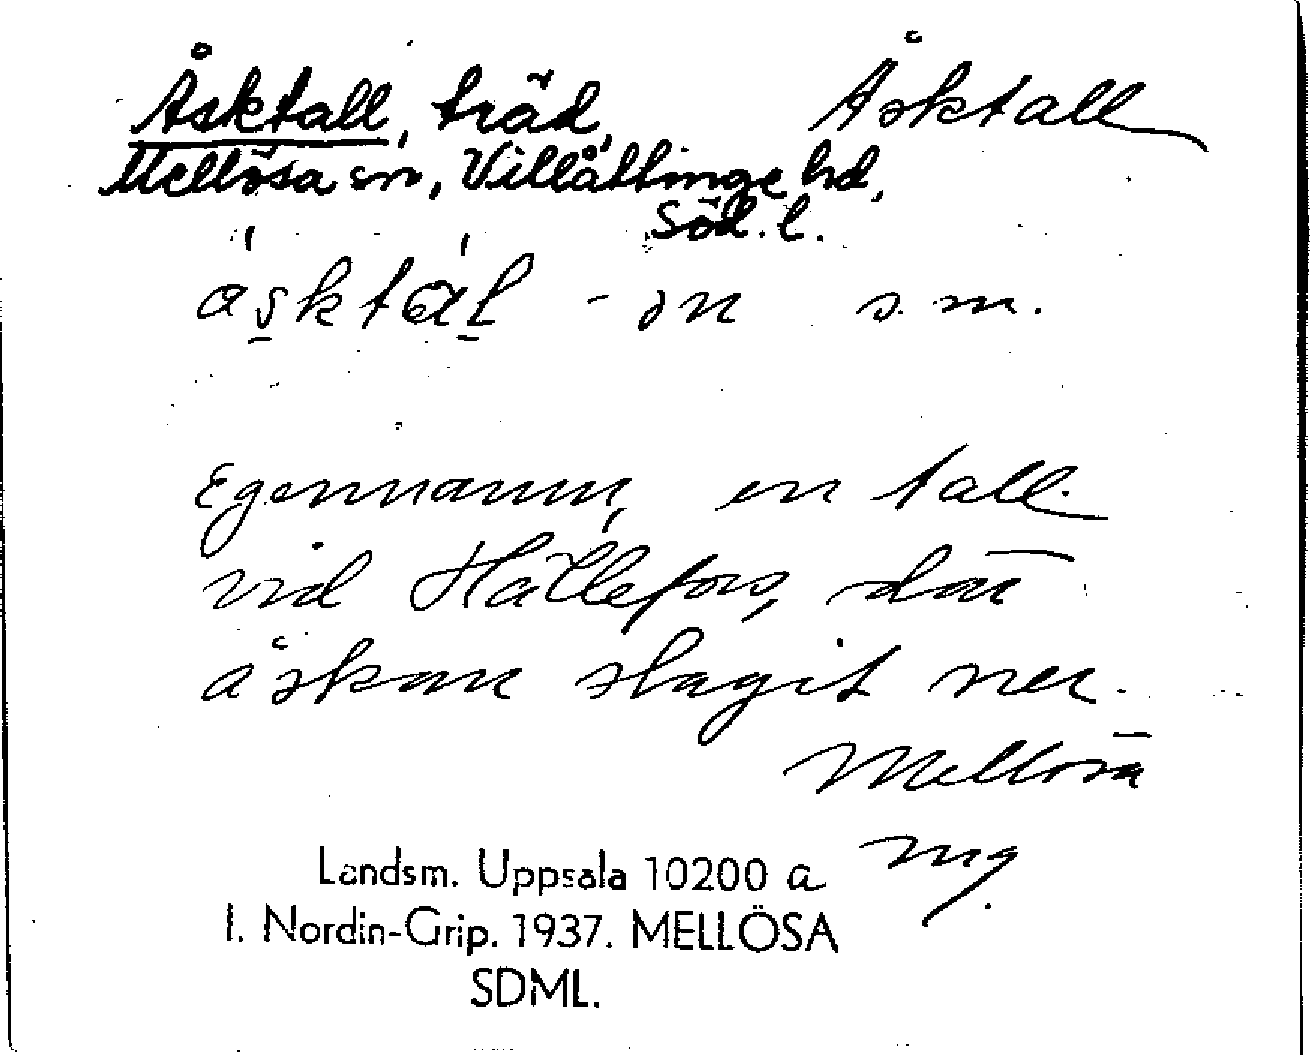 Åsktall, träd, Åsktall
Mellösa sn, Villåttinge hd,
Söd. l.
åsktal -ən s.m.
Egennamn, en tall
vid Hällefors, där
åskan slagit ner.
Mellösa
Landsm. Uppsala 10200 a
I. Nordin-Grip. 1937. MELLÖSA
SDML.